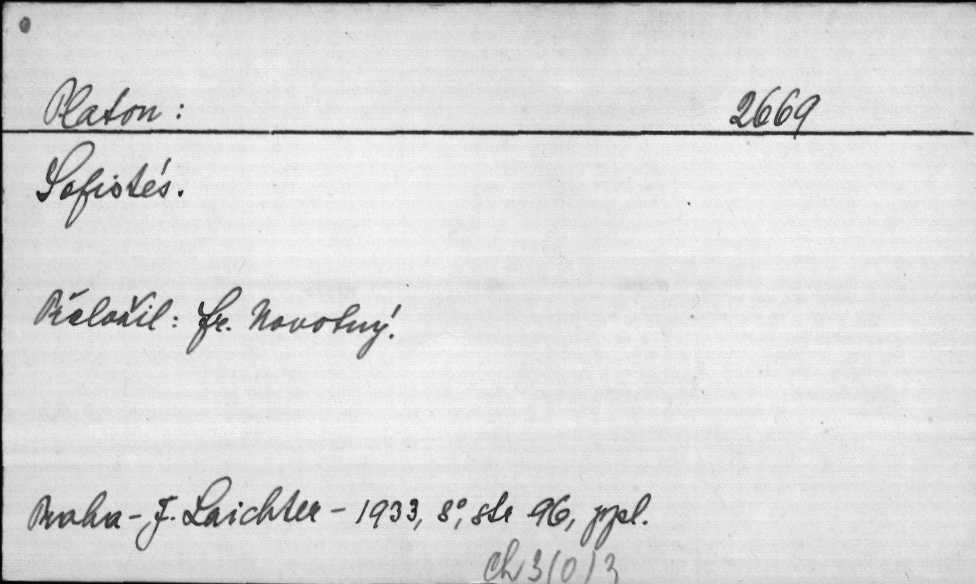 Platon : 2669
Sofistés.
Přeložil: Fr. Novotný.
Praha - J. Laichter - 1933, 8°, str 96, ppl.
Ch 3/0/3